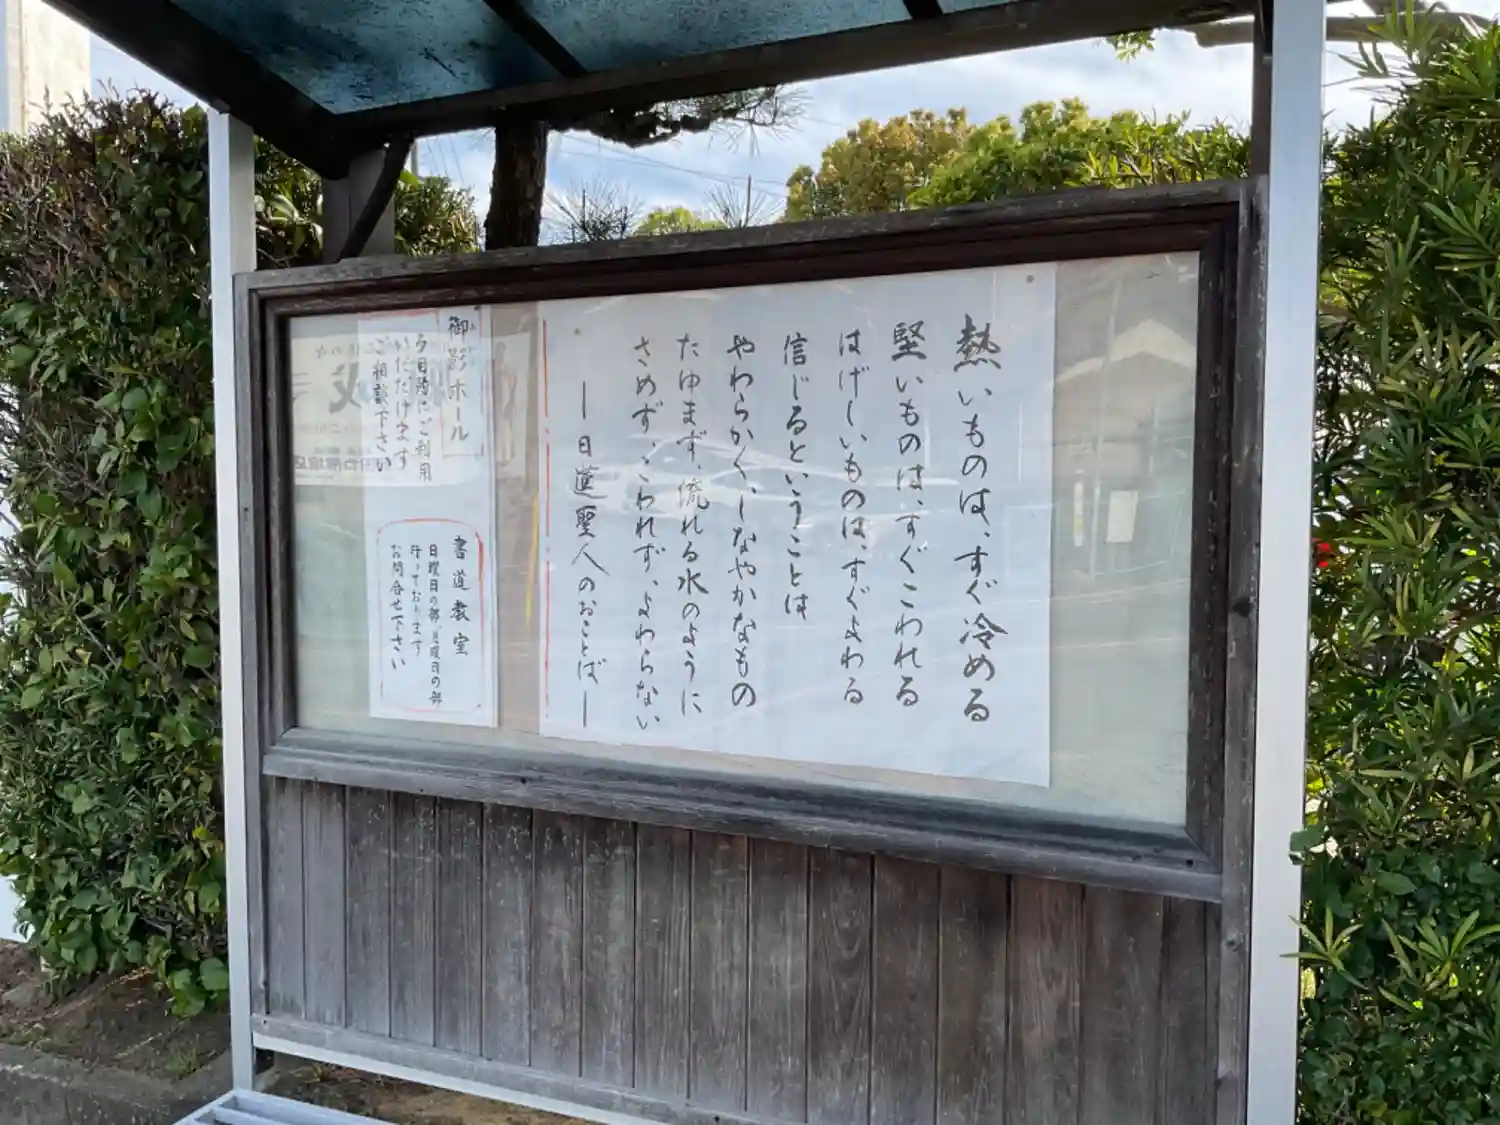 熱いものは、すぐ冷める
堅いものは、すぐこわれる
はげしいものは、すぐよわる
信じるということは
やわらかく、しなやかなもの
たゆまず、流れる水のように
さめず、こわれず、よわらない
―日蓮聖人のおことば―
御影ホール
多目的にご利用
いただけます
ご相談下さい
書道教室
日曜日の部、月曜日の部
行っております
お問合せ下さい